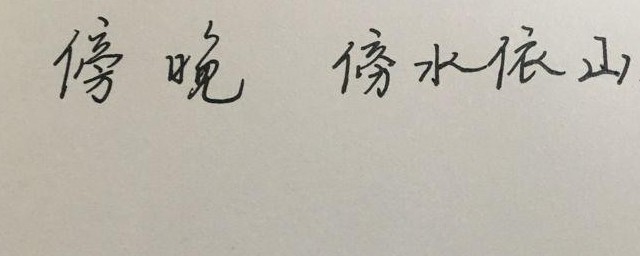 傍晚 傍水依山